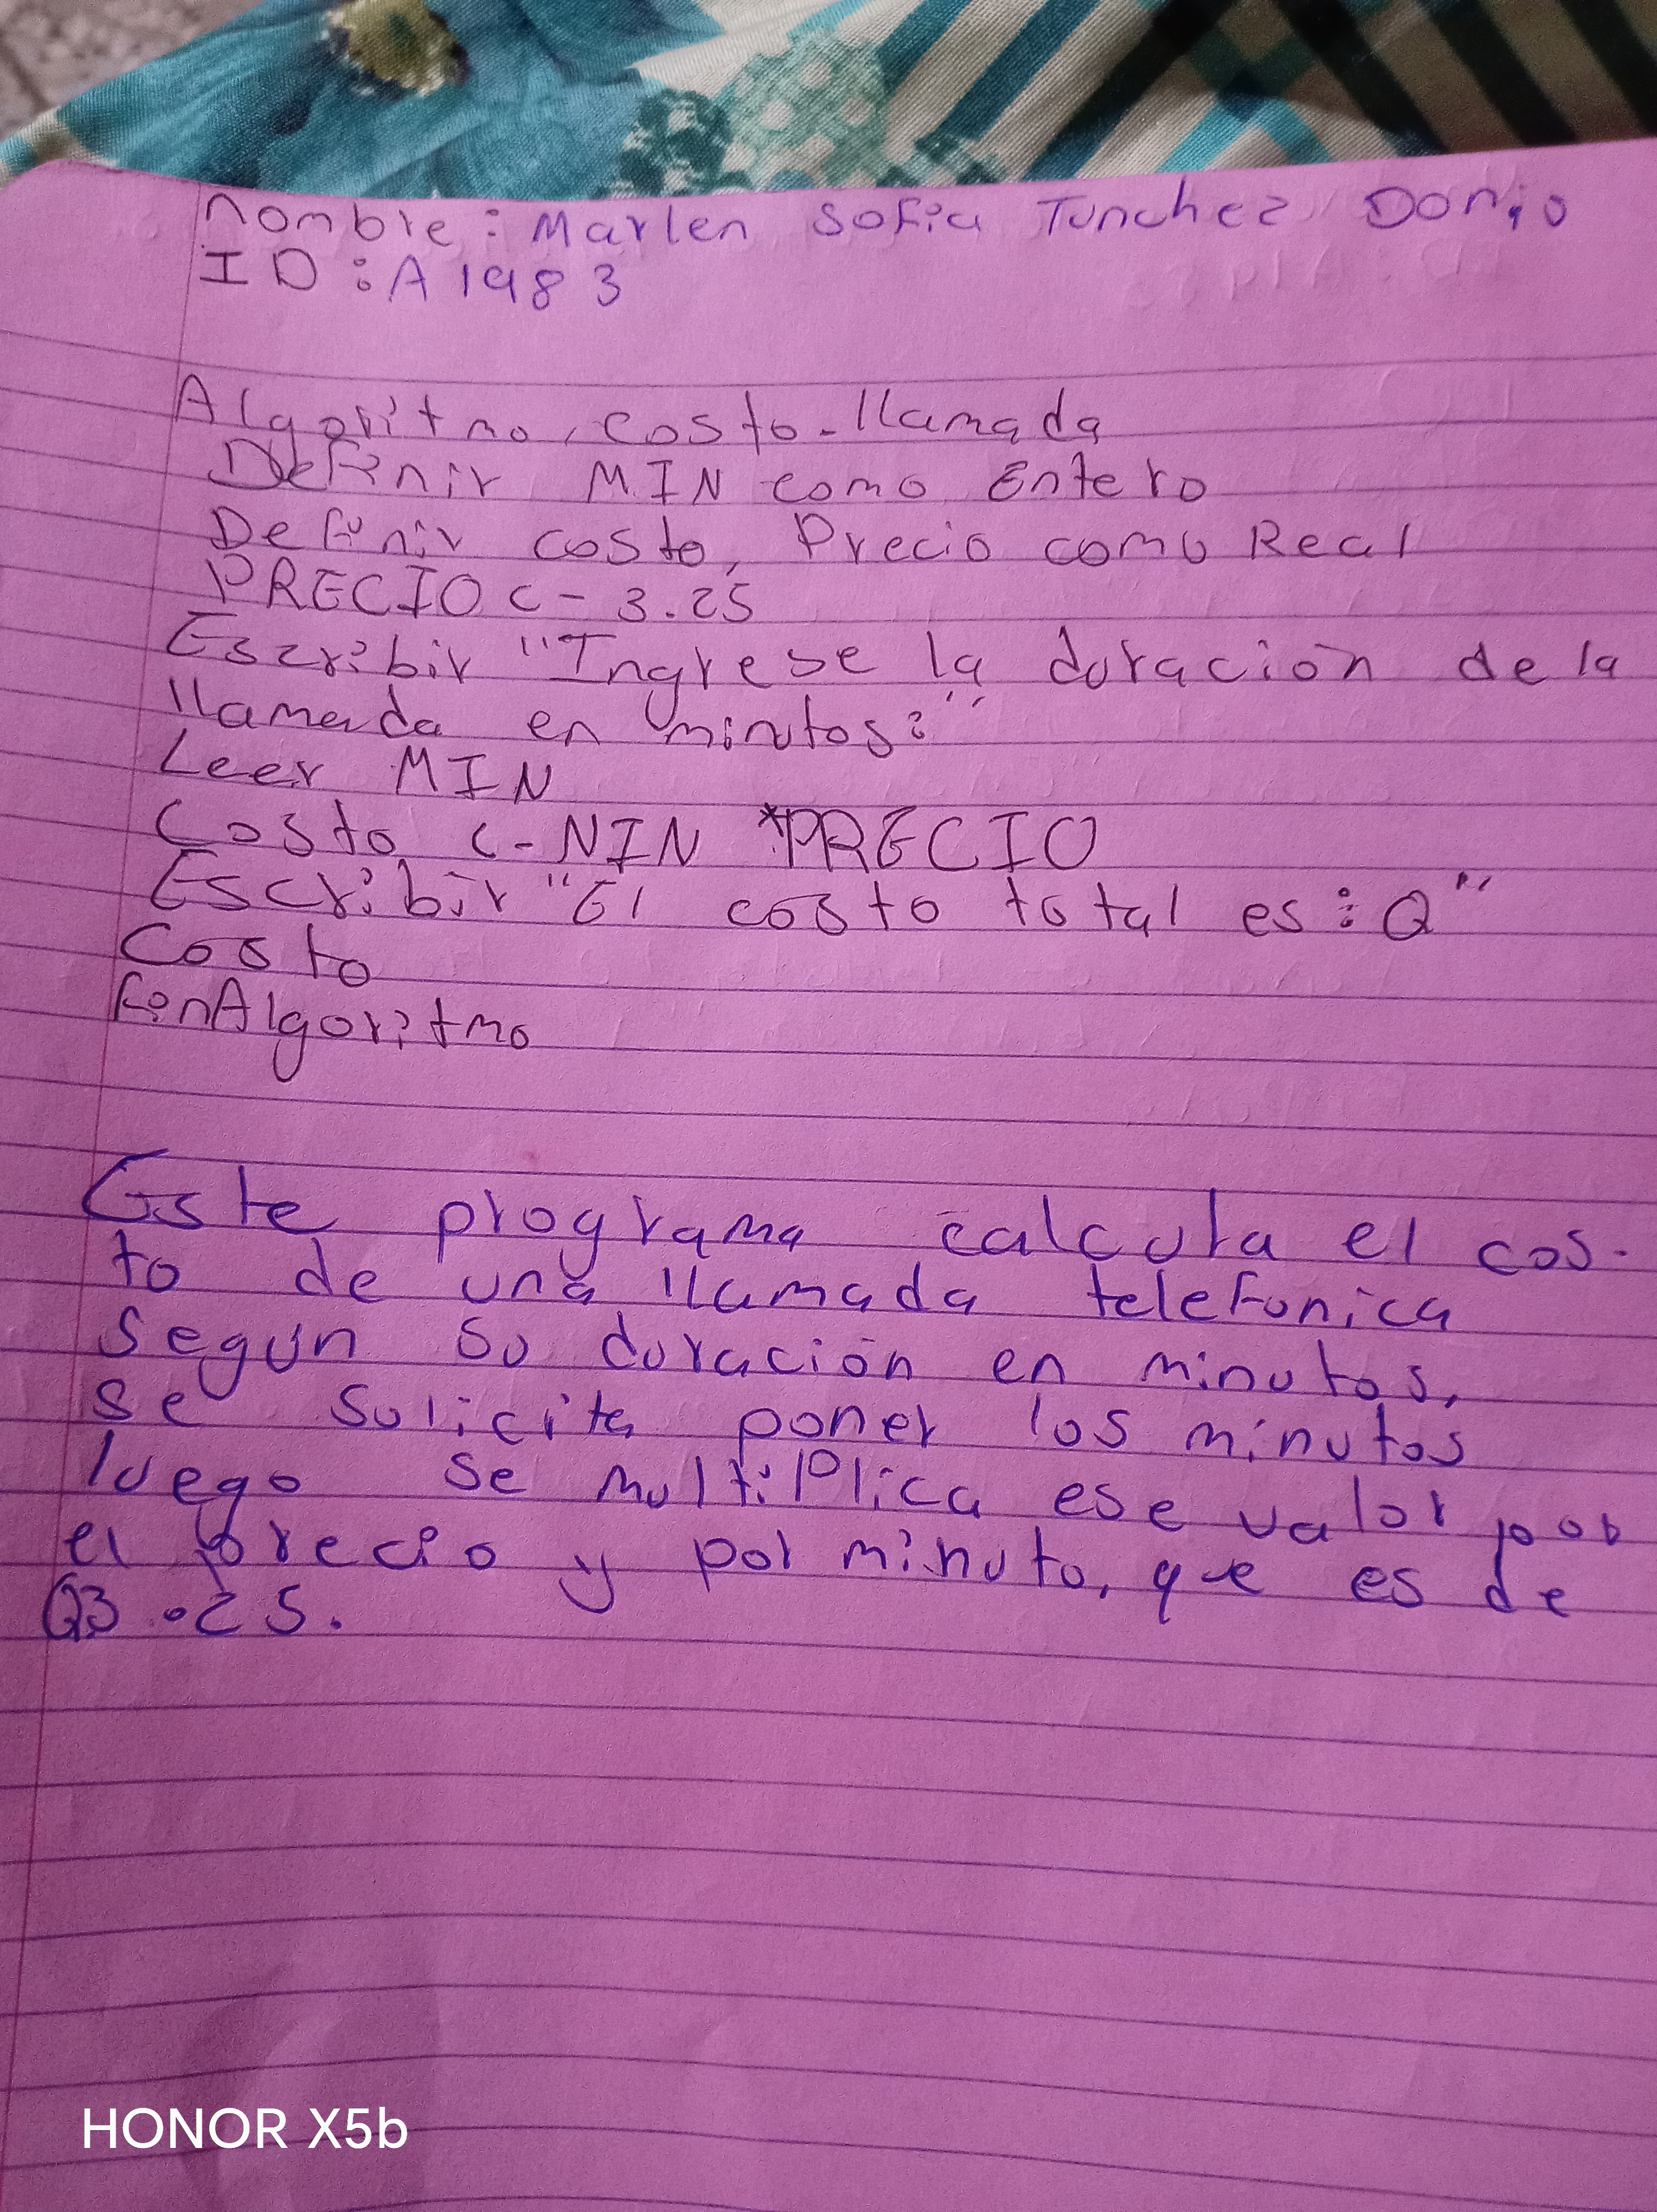 nombre: Marlen Sofia Tunchez Donio
ID: A1983
Algoritmo, costo-llamada
Definir MIN como Entero
Definir costo, Precio como Real
PRECIO <- 3.25
Escribir "Ingrese la duración de la
llamada en minutos:"
Leer MIN
Costo <- NIN *PRECIO
Escribir "El costo total es: Q"
Costo
FinAlgoritmo
Este programa calcula el cos-
to de una llamada telefonica
segun su duración en minutos,
se solicita poner los minutos
luego se multiplica ese valor por
el precio y por minuto, que es de
Q3.25.
HONOR X5b